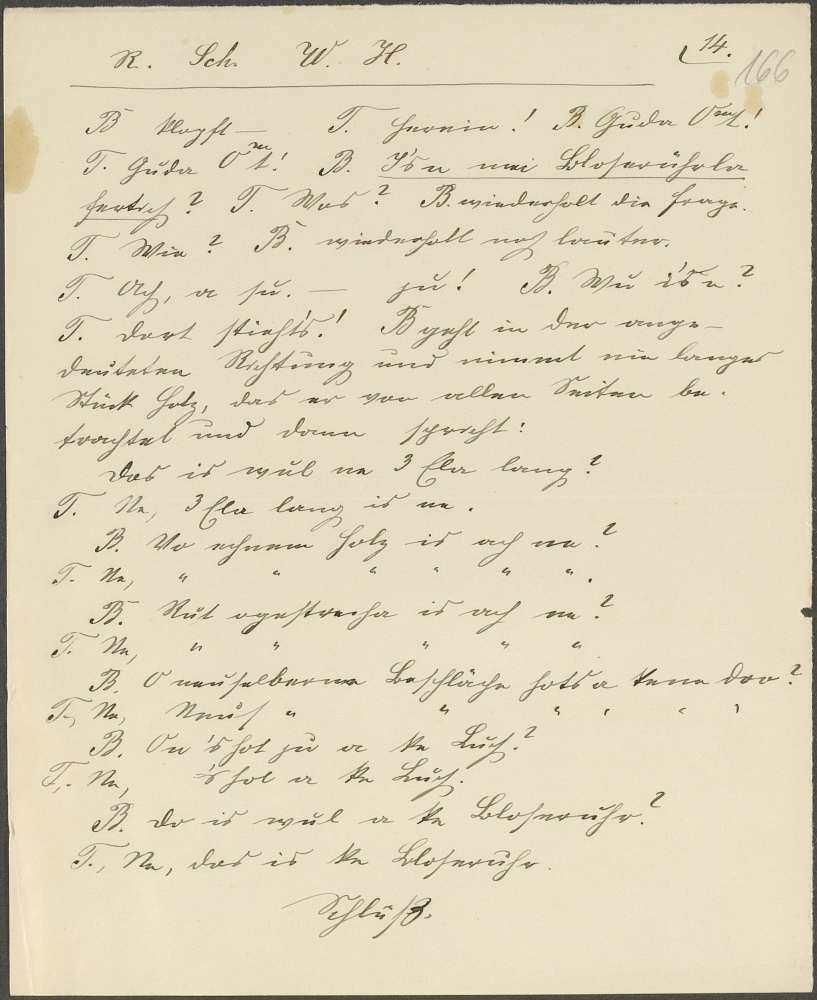 R. Sch. W. H. 14.
166
B klopft — T. Herein! B. Guda Omt!
T. Guda Omt! B. Is'n mei Bloserührla
fertich? T. Wos? B. wiederholt die Frage.
T. Wie? B. wiederholt noch lauter.
T. Ach, a su. — ju! B. Wu is'n?
T. dort stieht's! B geht in der ange-
deuteten Richtung und nimmt ein langes
Stück Holz, das er von allen Seiten be-
trachtet und dann spricht:
Das is wul ne 3 Ela lang?
T. Ne, 3 Ela lang is ne.
B. Vo echnem Holz is ach ne?
T. Ne, " " " " " ".
B. Rut ogestrecha is ach ne?
T. Ne, " " " " "
B. O neuselberne Beschläche hots a kene droo?
T., Ne, Neus " " " " " "
B. On 's hot ju a ke Luch?
T., Ne, 's hot a ke Luch.
B. do is wul a ke Bloseruhr?
T., Ne, das is ke Bloseruhr.
Schluß.